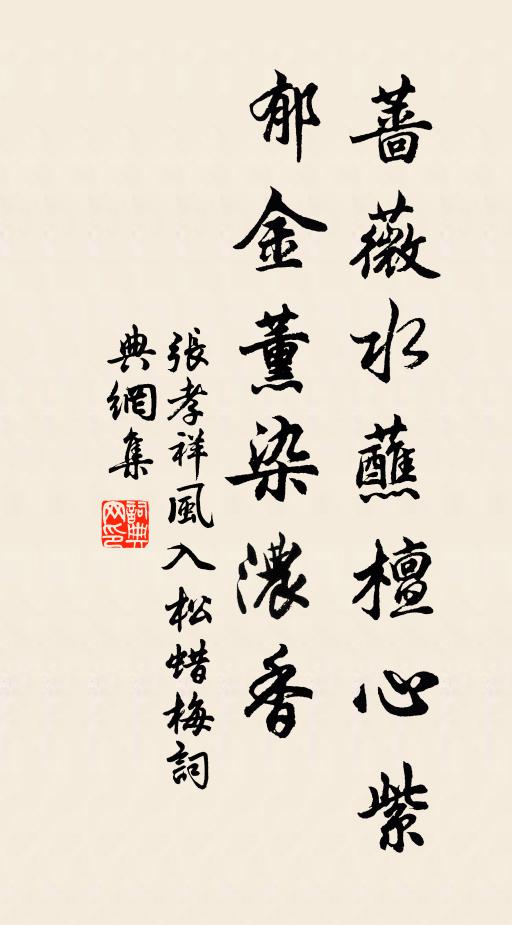 薔薇水蘸檀心紫
郁金薰染濃香
張孝祥風入松蜡梅詞
典網集
詞典网印